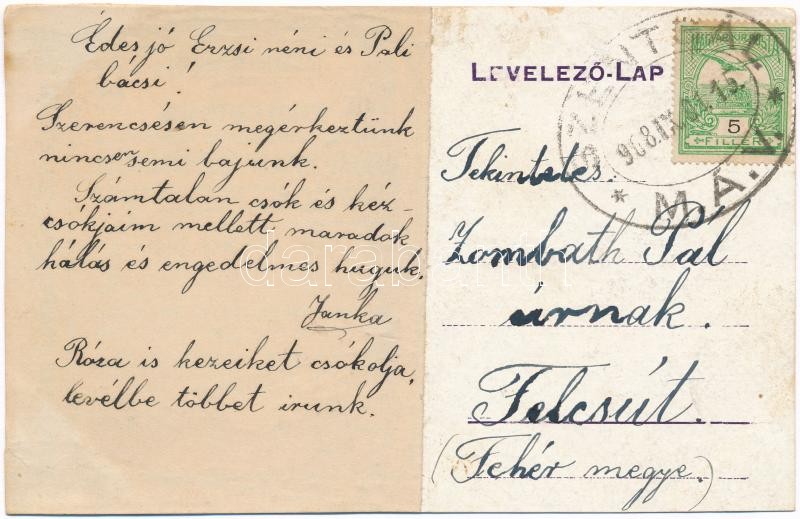 Édes jó Erzsi néni és Pali
bácsi!
Szerencsésen megérkeztünk
nincsen semi bajunk.
Számtalan csók és kéz-
csókjaim mellett maradok
hálás és engedelmes huguk.
Janka
Róza is kezeiket csókolja,
levélbe többet irunk.
LEVELEZŐ-LAP
5
FILLÉR
M.Á.V.
Tekintetes
Zombath Pal
úrnak.
Felcsút.
(Fehér megye.)
darabanth